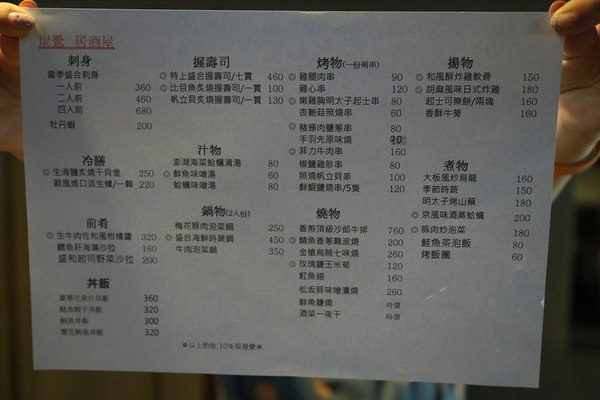 居酒屋
刺身
當季盛合刺身
一人前 360
二人前 460
四人前 680
牡丹蝦 200
冷膳
◎生海膽炙燒干貝堡 250
歐風進口活生蠔/一顆 220
前肴
◎生牛肉佐和風柑橘醬 320
鱈魚肝海藻沙拉 160
盛和起司野菜沙拉 200
丼飯
豪華生魚片丼飯 360
鮭魚親子丼飯 320
鮪魚丼飯 300
蔥花鮪魚丼飯 320
握壽司
◎特上盛合握壽司/七貫 460
◎比目魚炙燒握壽司/一貫 100
帆立貝炙燒握壽司/一貫 130
汁物
澎湖海菜蛤蠣清湯 80
◎鮮魚味噌湯 60
蛤蠣味噌湯 80
鍋物(2人份)
梅花豚肉泡菜鍋 250
◎盛合海鮮時蔬鍋 450
牛肉泡菜鍋 350
烤物(一份兩串)
◎雞腿肉串 90
雞心串 120
◎嫩雞胸明太子起士串 80
杏鮑菇照燒串 60
◎豬頰肉鹽蔥串 80
手羽先原味燒 90
◎菲力牛肉串
椒鹽雞胗串 80
照燒帆立貝串 100
鮮蝦鹽燒串/5隻 120
燒物
香煎頂級沙郎牛排 760
◎鯖魚香蔥難波燒 200
金槍烏賊七味燒 260
◎玫瑰鹽玉米筍 120
魟魚翅 160
松坂豚味噌漬燒 260
鮮魚鹽燒 時價
酒菜一夜干 時價
揚物
◎和風酥炸雞軟骨 150
◎胡麻風味日式炸雞 180
起士可樂餅/兩塊 160
香酥牛蒡 160
煮物
大板風炒烏龍 160
季節時蔬 150
明太子烤山藥 180
◎京風味酒蒸蛤蠣 200
◎豚肉炒泡菜 180
鮭魚茶泡飯 80
烤飯團 60
＊以上酌收 10%服務費＊